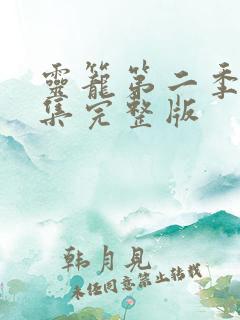 靈籠第二季
集完整版
韩月見
未经同意禁止转载